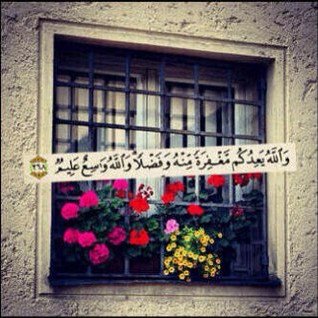 وَٱللَّهُ يَعِدُكُم مَّغْفِرَةً مِّنْهُ وَفَضْلًا وَٱللَّهُ وَٰسِعٌ عَلِيمٌ ٢٦٨